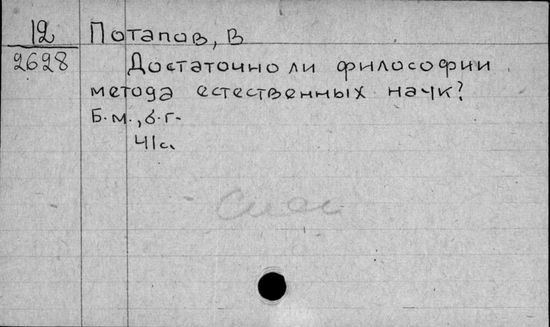 12 Потапов, В
2628 Достаточно ли философии
метода естественных наук?
Б.м., б.г.
41с.